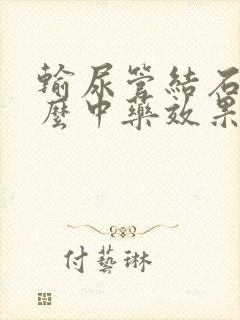 輸尿管結石
麼中藥效果
付藝琳